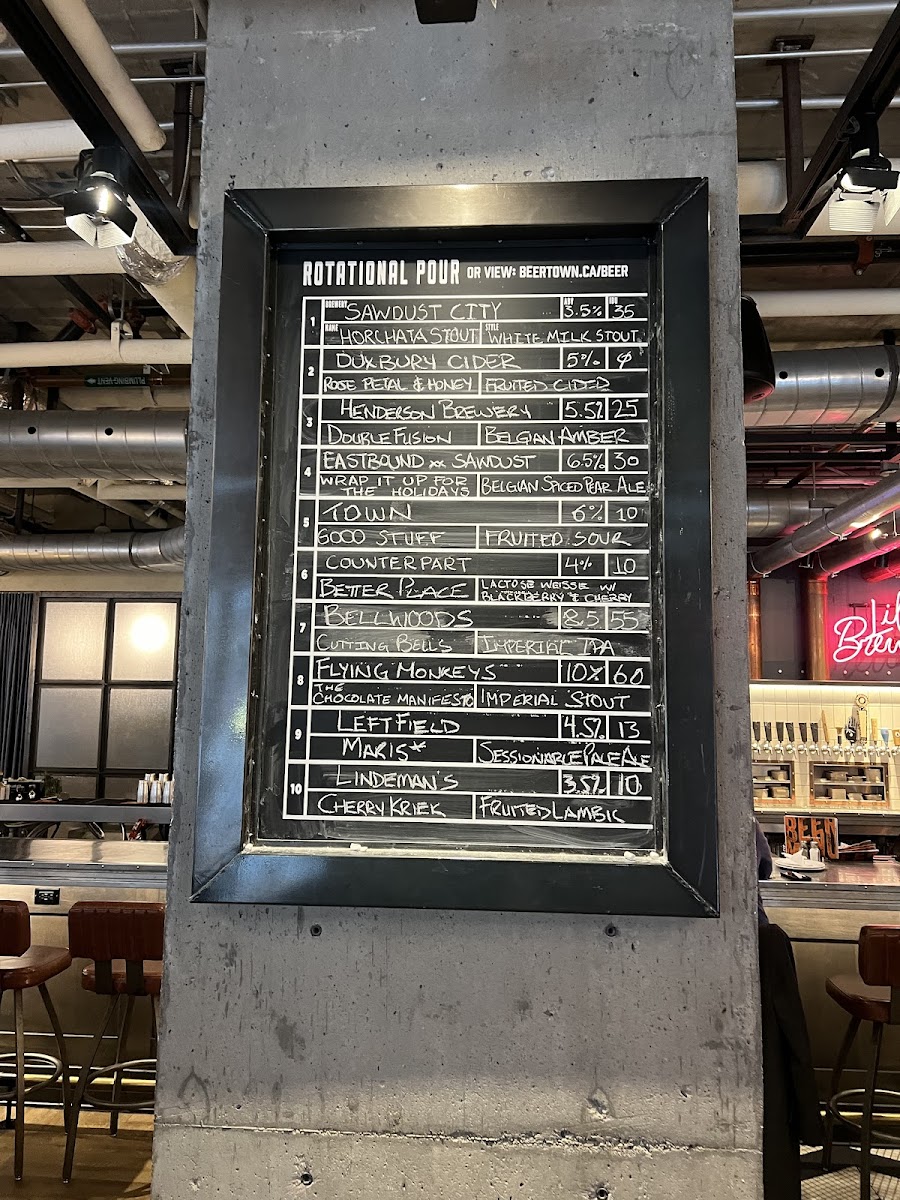 ROTATIONAL POUR OR VIEW: BEERTOWN.CA/BEER
1 BREWERY SAWDUST CITY ABV 3.5% IBU 35
NAME HORCHATA STOUT STYLE WHITE MILK STOUT
2 DUXBURY CIDER 5% 0
ROSE PETAL & HONEY FRUITED CIDER
3 HENDERSON BREWERY 5.5% 25
DOUBLE FUSION BELGIAN AMBER
4 EASTBOUND xx SAWDUST 6.5% 30
WRAP IT UP FOR THE HOLIDAYS BELGIAN SPICED PEAR ALE
5 TOWN 6% 10
GOOD STUFF FRUITED SOUR
6 COUNTERPART 4% 10
BETTER PLACE LACTOSE WEISSE W/ BLACKBERRY & CHERRY
7 BELLWOODS 8.5 55
CUTTING BELLS IMPERIAL IPA
8 FLYING MONKEYS 10% 60
THE CHOCOLATE MANIFESTO IMPERIAL STOUT
9 LEFT FIELD 4.5% 13
MARIS* SESSIONABLE PALE ALE
10 LINDEMAN'S 3.5% 10
CHERRY KRIEK FRUITED LAMBIC
PLUMBING-VENT
BEER